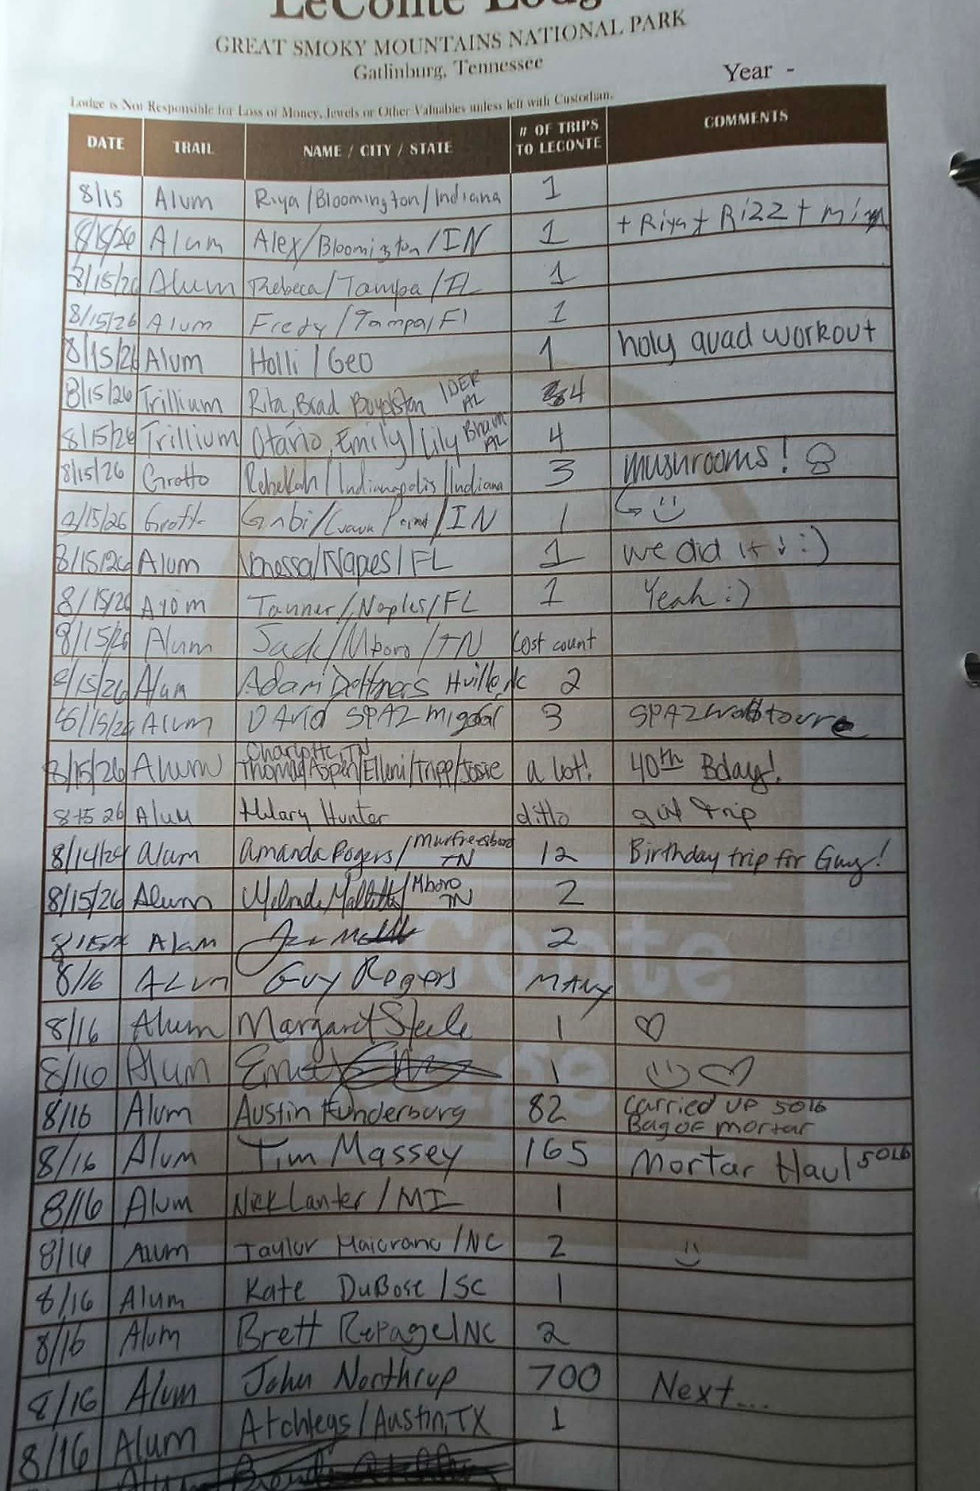 LeConte Lodg
GREAT SMOKY MOUNTAINS NATIONAL PARK
Gatlinburg, Tennessee
Year -
Lodge is Not Responsible for Loss of Money, Jewels or Other Valuables unless left with Custodian.
DATE TRAIL NAME / CITY / STATE # OF TRIPS TO LECONTE COMMENTS
8/15 Alum Riya/Bloomington/Indiana 1
8/15/26 Alum Alex/Bloomington/IN 1 + Riya + Rizz +
8/15/26 Alum Rebeca/Tampa/FL 1
8/15/26 Alum Fredy/Tampa/Fl 1
8/15/26 Alum Holli/Geo 1 holy quad workout
8/15/26 Trillium Rita, Brad Boydston IDER AL 4
8/15/26 Trillium Otario, Emily/Lily Bham AL 4
8/15/26 Grotto Rebekah/Indianapolis/Indiana 3 mushrooms!
8/15/26 Grotto Gabi/Crown Point/IN 1 :)
8/15/26 Alum Vanessa/Naples/FL 1 we did it! :)
8/15/26 Alom Tanner/Naples/FL 1 Yeah :)
8/15/26 Alum Jack/Mboro/TN Lost count
8/15/26 Alum Adam Hville, NC 2
8/15/26 Alum DAVID SPAZ migdal 3
8/15/26 Alum Charlotte, TN
Thomas/Aspen/Elleni/Tripp/Josie a lot! 40th Bday!
8-15 26 Alum Hilary Hunter ditto girl trip
8/14/26 alum Amanda Rogers/Murfreesboro TN 12 Birthday trip for Guy!
8/15/26 Alum Mboro TN 2
Alum 2
8/16 ALum Guy Rogers MANY
8/16 Alum Margaret Steele 1 ♡
8/16 Alum 1 :) ♡
8/16 Alum Austin Funderburg 82 Carried UP 50lb
Bag of mortar
8/16 Alum Tim Massey 165 Mortar Haul 50Lb
8/16 Alum Nick Lanter/MI 1
8/16 Alum Taylor Maiorano/NC 2 :)
8/16 Alum Kate DuBose/SC 1
8/16 Alum Brett Repage/NC 2
8/16 Alum John Northrup 700 Next...
8/16 Alum Atchleys/Austin, TX 1
Alum